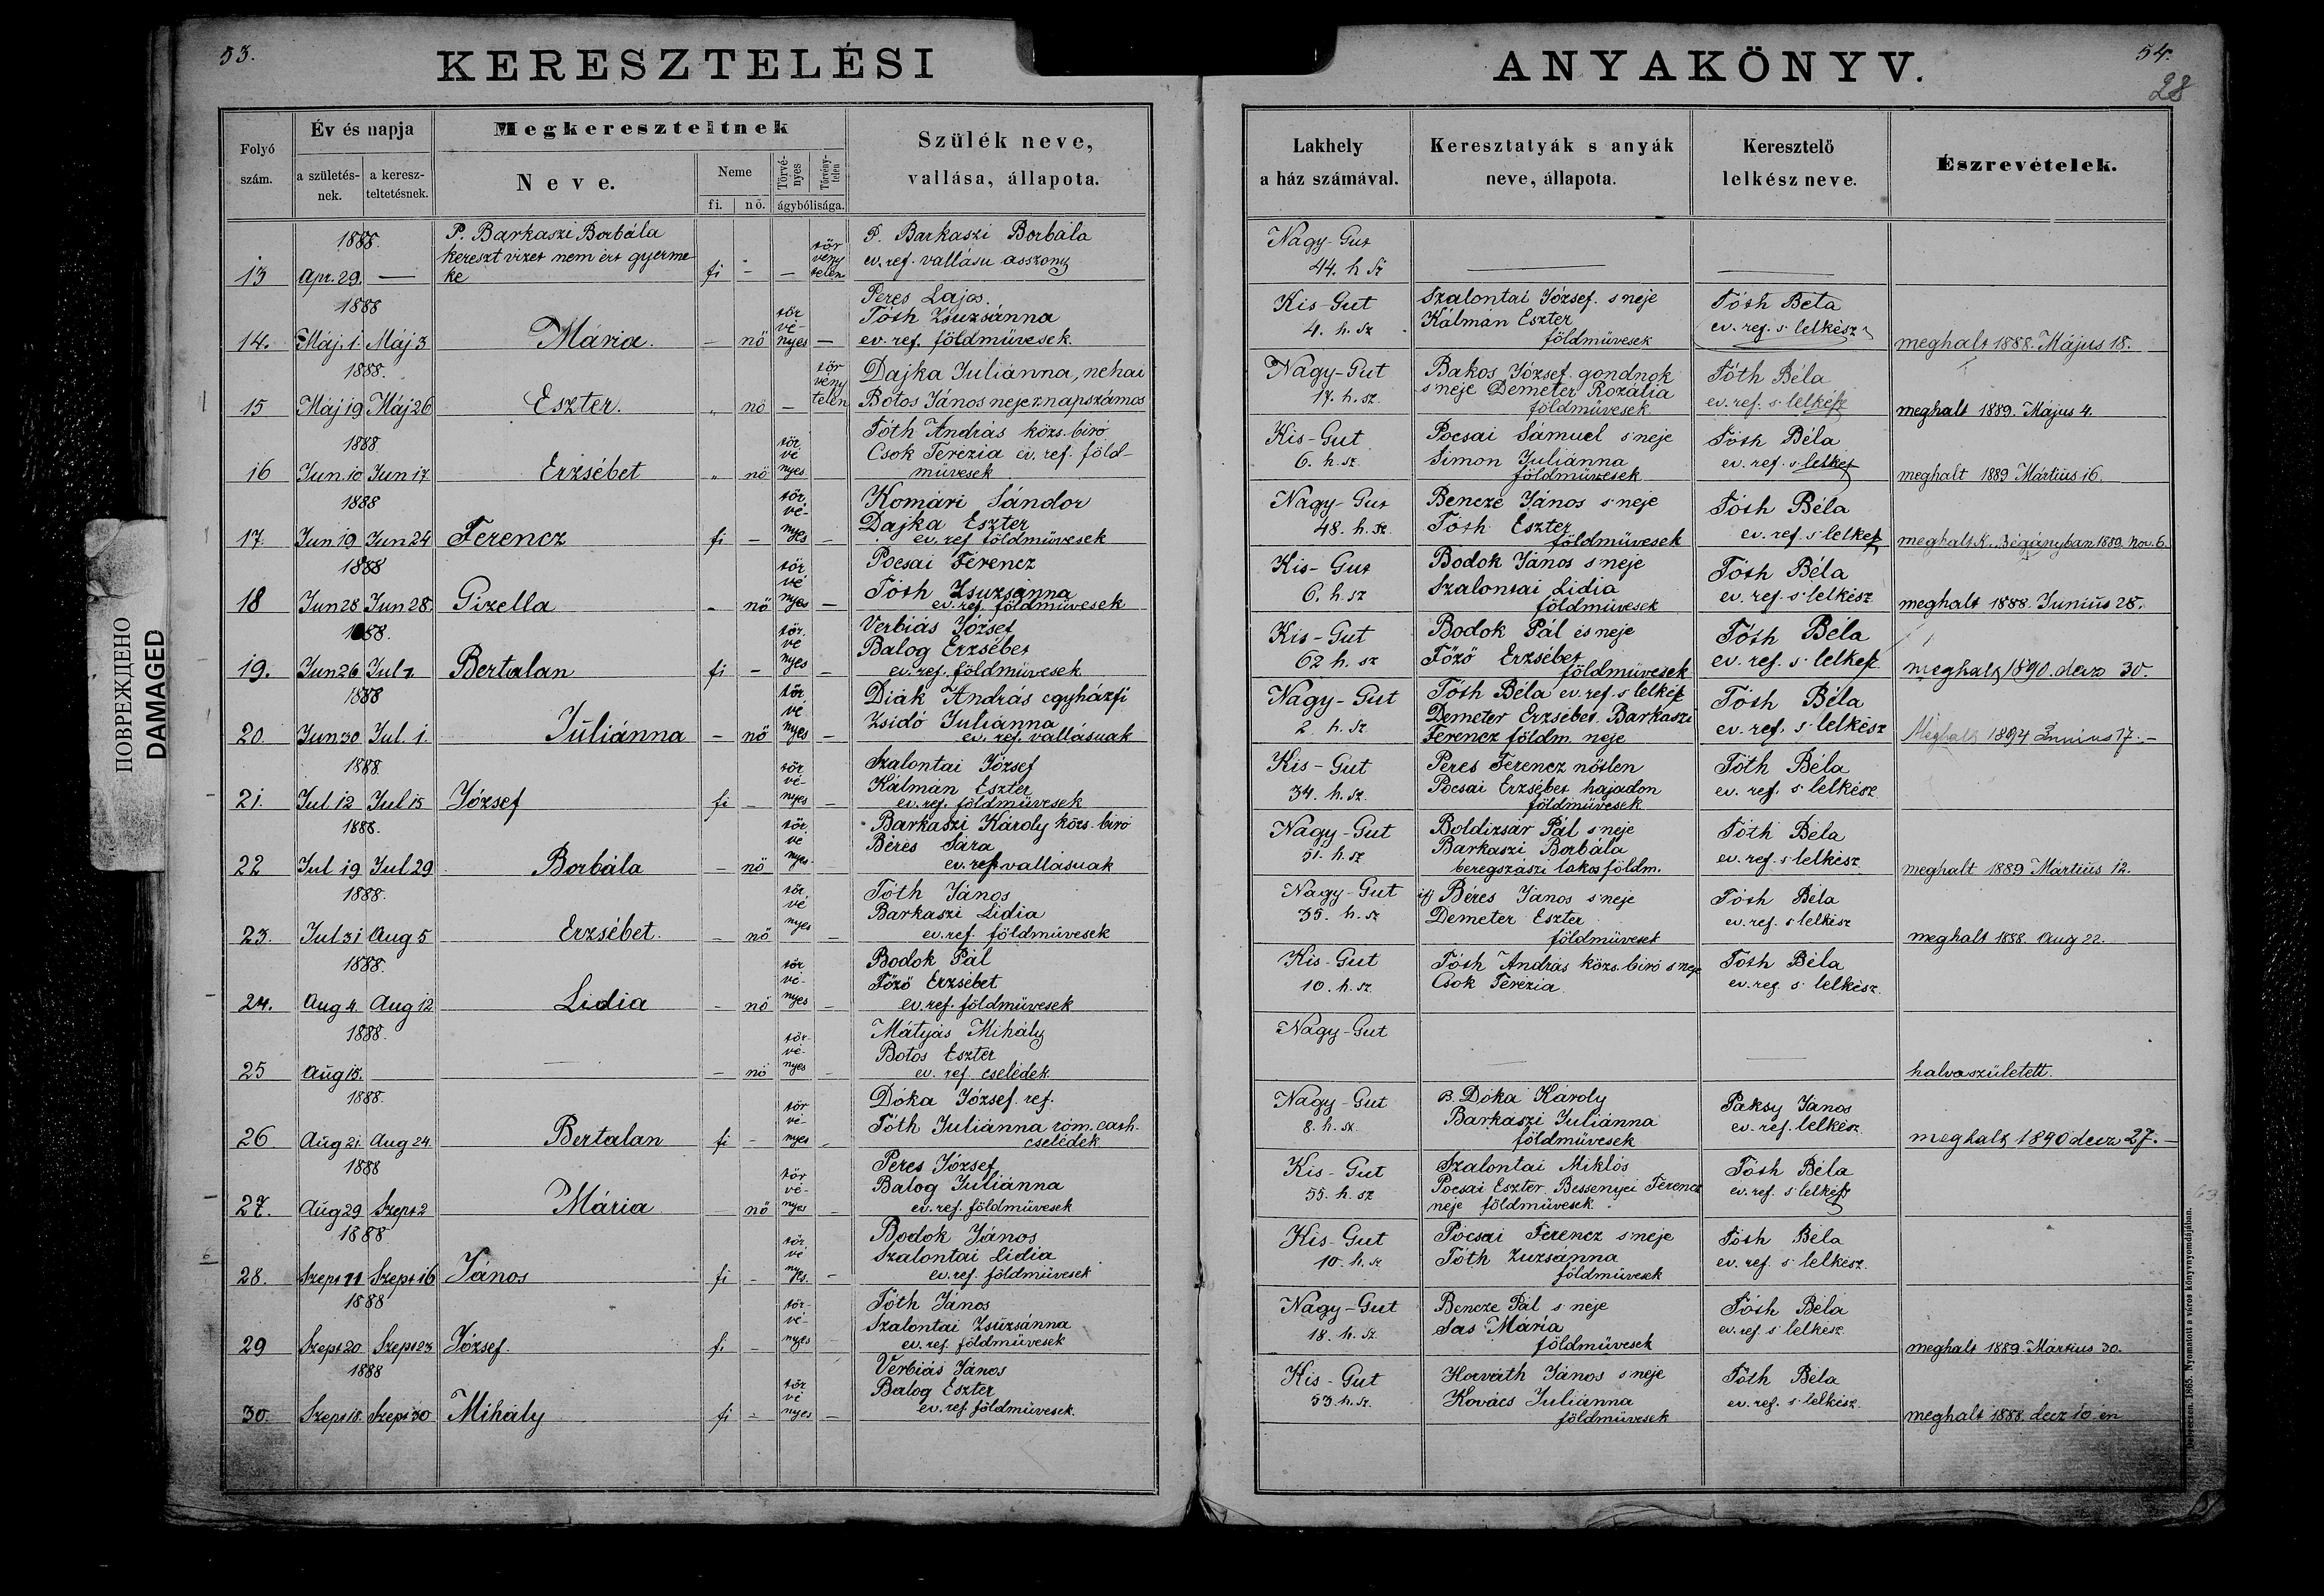 53.
KERESZTELÉSI
Folyó szám.
Év és napja
a születés-nek.
a keresz-teltetésnek.
Megkereszteltnek
Neve.
Neme
fi.
nő.
Törvé-nyes
Törvény-telen
ágybólisága.
Szülék neve,
vallása, állapota.
1888.
13 Apr. 29. —
P. Barkaszi Borbála
kereszt vizet nem ért gyerme-
ke
fi - — tör vény telen
P. Barkaszi Borbála
ev. ref. vallásu asszony
1888
14. Máj. 1. Máj 3 Mária. — nő tör vé- nyes —
Peres Lajos.
Tóth Zsuzsánna
ev. ref. földmüvesek
1888.
15 Máj 19 Máj 26 Eszter. „ nő — tör vény telen
Dajka Juliánna, nehai
Botos János neje napszámos
1888
16 Jun. 10 Jun 17 Erzsébet „ nő tör vé nyes
Tóth András közs. biró
Csok Terézia ev. ref. föld-
müvesek
1888
17. Jun 19 Jun 24 Ferencz fi — tör vé- nyes —
Komári Sándor
Dajka Eszter
ev. ref földmüvesek
1888
18 Jun 28 Jun 28. Gizella - nő tör vé nyes —
Pocsai Ferencz
Tóth Zsuzsánna
ev. ref. földmüvesek
1888.
19. Jun 26 Jul 1. Bertalan fi — tör. vé nyes —
Verbiás József
Balog Erzsébet
ev. ref. földmüvesek
1888
20 Jun 30 Jul. 1. Juliánna — nő tör vé nyes —
Diák András egyházfi
Zsidó Juliánna
ev. ref. vallásuak
1888.
21. Jul 12 Jul 15 József fi — tör vé- nyes —
Szalontai József
Kálmán Eszter
ev. ref. földmüvesek
1888.
22 Jul 19 Jul 29 Borbála — nő tör. vé nyes. —
Barkaszi Károly közs. biró
Béres Sára
ev. ref. vallásuak
1888.
23. Jul 31 Aug 5 Erzsébet. — nő tör vé nyes —
Tóth János
Barkaszi Lidia
ev. ref. földmüvesek
1888.
24. Aug 4. Aug 12 Lidia — nő tör vé- nyes —
Bodok Pál
Főző Erzsébet
ev. ref. földmüvesek
1888.
25 Aug 15. — — nő tör- vé- nyes —
Mátyás Mihály
Botos Eszter
ev. ref. cselédek
1888.
26 Aug 21. Aug 24. Bertalan fi — tör vé- nyes —
Dóka József. ref.
Tóth Juliánna róm. cath.
cselédek
1888
27. Aug 29 Szept 2 Mária — nő tör vé- nyes —
Peres József
Balog Juliánna
ev. ref. földmüvesek
1888
28. Szept 11 Szept 16 János fi — tör vé nyes. —
Bodok János
Szalontai Lidia
ev. ref. földmüvesek
1888
29 Szept 20 Szept 23 József. fi — tör- vé- nyes —
Tóth János
Szalontai Zsuzsánna
ev. ref. földmüvesek
1888
30. Szept 18. Szept 30 Mihály fi — tör vé nyes —
Verbiás János
Balog Eszter
ev. ref földmüvesek.
ПОВРЕЖДЕНО
DAMAGED
54.
28
ANYAKÖNYV.
Lakhely
a ház számával.
Keresztatyák s anyák
neve, állapota.
Keresztelő
lelkész neve.
Észrevételek.
Nagy-Gut
44. h sz
Kis-Gut
4. h. sz
Szalontai József s neje
Kálmán Eszter
földmüvesek
Tóth Béla
ev. ref. s. lelkész
meghalt 1888. Május 18.
Nagy-Gut
17. h. sz.
Bakos József gondnok
s neje Demeter Rozália
földmüvesek
Tóth Béla
ev. ref. s. lelkész
meghalt 1889. Május 4.
Kis-Gut
6. h. sz.
Pocsai Sámuel s neje
Simon Juliánna
földmüvesek
Tóth Béla
ev. ref. s. lelkész
meghalt 1889 Március 16.
Nagy-Gut
48. h. sz.
Bencze János s neje
Tóth Eszter
földmüvesek
Tóth Béla
ev. ref. s. lelkész
meghalt K. Bégányban 1889. Nov. 6.
Kis-Gut
6. h. sz
Bodok János s neje
Szalontai Lidia
földmüvesek
Tóth Béla
ev. ref. s. lelkész
meghalt 1888. Junius 28.
Kis-Gut
62 h. sz
Bodok Pál és neje
Főző Erzsébet
földmüvesek
Tóth Béla
ev. ref. s. lelkész
meghalt 1890. decz 30.
Nagy-Gut
2. h. sz.
Tóth Béla ev. ref. s lelkész
Demeter Erzsébet Barkaszi
Ferencz földm. neje
Tóth Béla
ev. ref. s. lelkész
Meghalt 1894 Junius 17.—
Kis-Gut
34. h. sz.
Peres Ferencz nőtlen
Pocsai Erzsébet hajadon
földmüvesek
Tóth Béla
ev. ref. s. lelkész
Nagy-Gut
51. h. sz
Boldizsár Pál s neje
Barkaszi Borbála
beregszászi lakos földm.
Tóth Béla
ev. ref. s. lelkész
meghalt 1889 Március 12.
Nagy-Gut
35. h. sz
ifj Béres János s neje
Demeter Eszter
földmüvesek
Tóth Béla
ev. ref. s lelkész
meghalt 1888. Aug 22.
Kis-Gut
10. h. sz.
Tóth András közs. biró s neje
Csok Terézia
Tóth Béla
ev. ref. s. lelkész.
Nagy-Gut
halvaszületett.
Nagy-Gut
8. h. sz.
B. Dóka Károly
Barkaszi Juliánna
földmüvesek
Paksy János
ev. ref. lelkész
meghalt 1890 decz 27.—
Kis-Gut
55. h. sz
Szalontai Miklós
Pocsai Eszter Bessenyei Ferencz
neje földmüvesek.
Tóth Béla
ev. ref. s. lelkész
Kis-Gut
10. h. sz
Pocsai Ferencz s neje
Tóth Zuzsánna
földmüvesek
Tóth Béla
ev. ref. s. lelkész.
Nagy-Gut
18. h. sz.
Bencze Pál s neje
Sas Mária
földmüvesek
Tóth Béla
ev. ref. s. lelkész
meghalt 1889. Március 30.
Kis-Gut
53. h. sz.
Horváth János s neje
Kovács Juliánna
földmüvesek
Tóth Béla
ev. ref. s. lelkész.
meghalt 1888. decz 10.én
Debreczen. 1865. Nyomatott a város könyvnyomdájában.